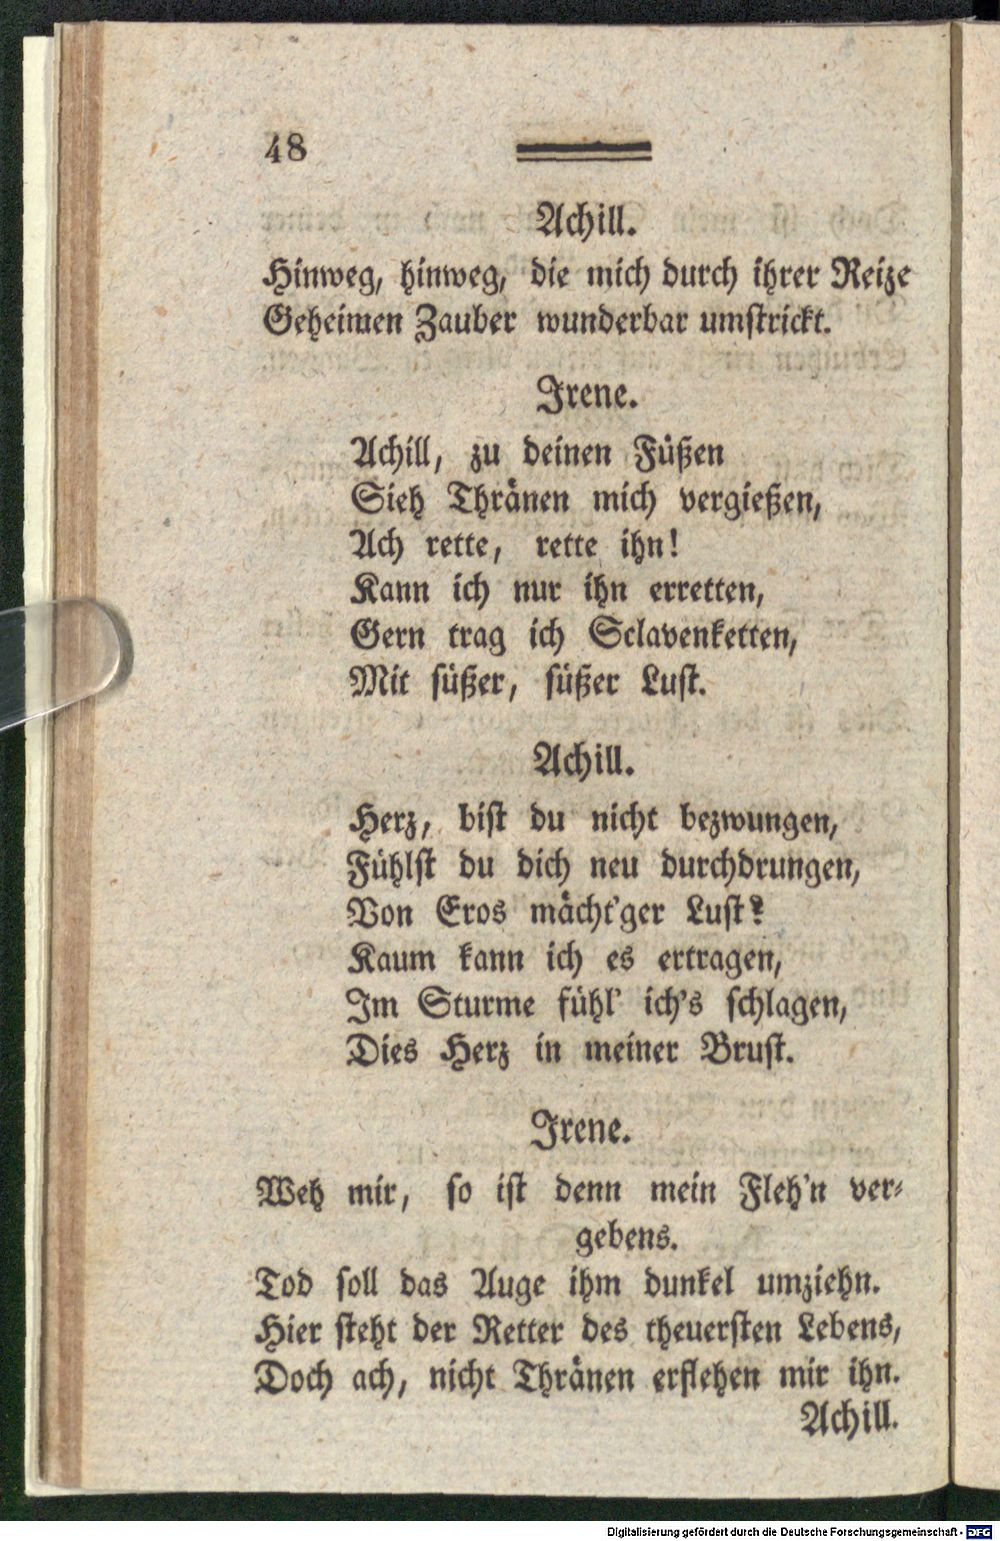 48
Achill.
Hinweg, hinweg, die mich durch ihrer Reize
Geheimen Zauber wunderbar umstrickt.
Irene.
Achill, zu deinen Füßen
Sieh Thränen mich vergießen,
Ach rette, rette ihn!
Kann ich nur ihn erretten,
Gern trag ich Sclavenketten,
Mit süßer, süßer Lust.
Achill.
Herz, bist du nicht bezwungen,
Fühlst du dich neu durchdrungen,
Von Eros mächt'ger Lust?
Kaum kann ich es ertragen,
Im Sturme fühl' ich's schlagen,
Dies Herz in meiner Brust.
Irene.
Weh mir, so ist denn mein Fleh'n ver-
gebens.
Tod soll das Auge ihm dunkel umziehn.
Hier steht der Retter des theuersten Lebens,
Doch ach, nicht Thränen erflehen mir ihn.
Achill.
Digitalisierung gefördert durch die Deutsche Forschungsgemeinschaft - DFG